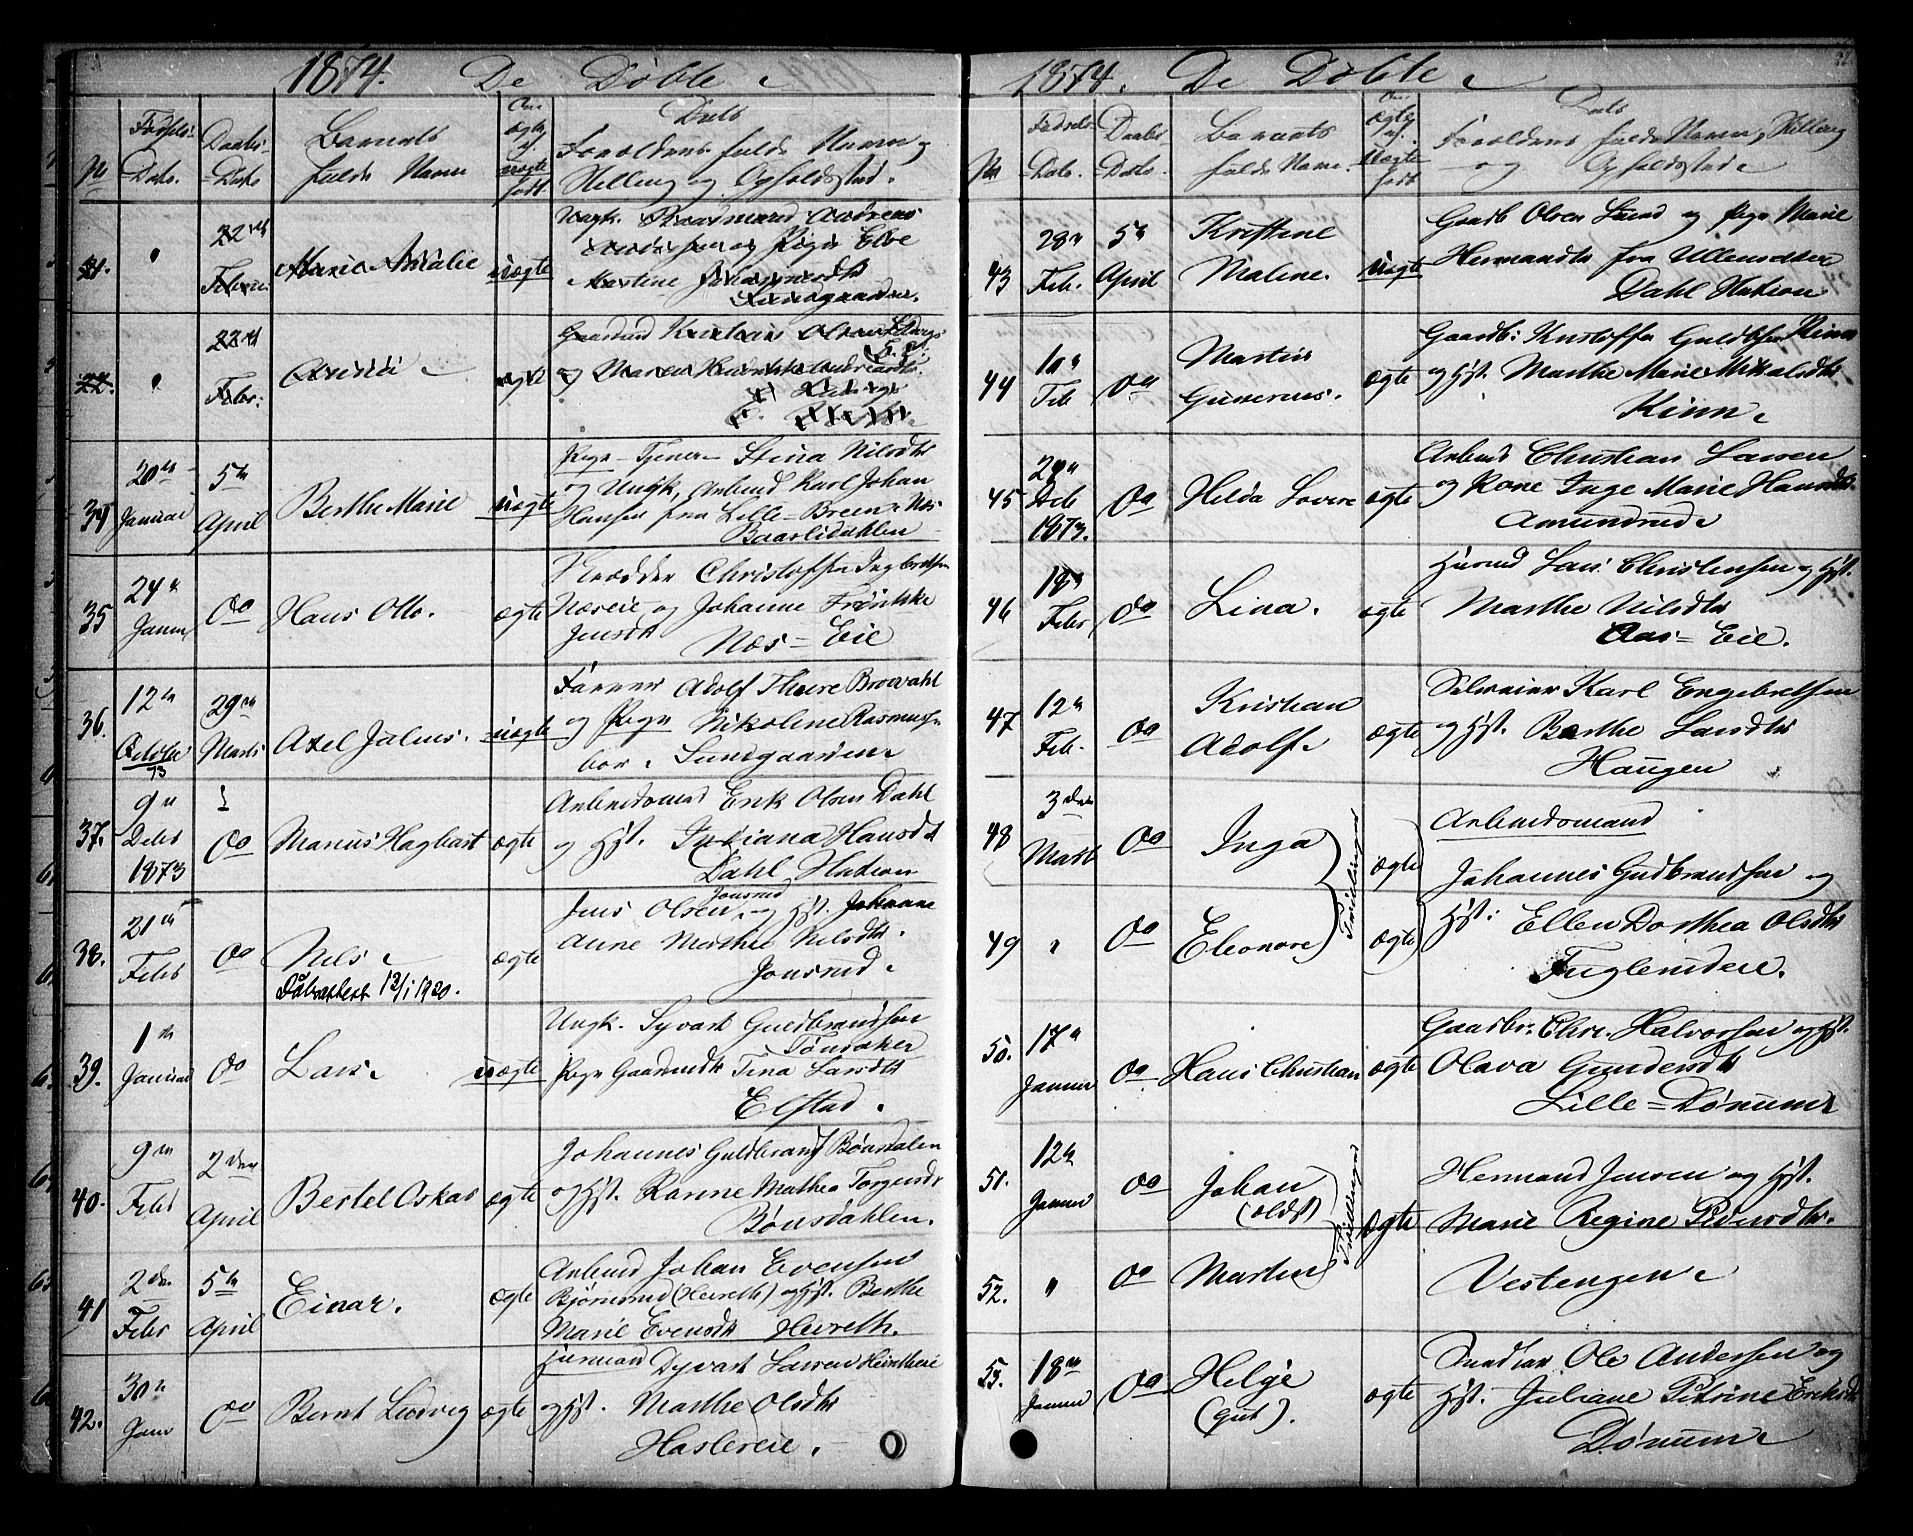 1874. De Døbte
No
Fødsels-
Dato.
Daabs-
Dato
Barnets
fulde Navn
Om
ægte
el.
uægte
født
Dets
Forældres fulde Navn,
Stilling og Opholdssted.
21.
"
22nd
Febr
Marie Amalie
uægte
Ungk. Baadsmand Andreas
og Pige Elve
Martine Johannesdt
Sundgaarden.
22.
"
22nd
Febr.
ægte
Gaardmd Kristian Olsen
og Maren
34
20de
Januar
5te
April
Berthe Marie
uægte
Pige-Tjener Stina Nilsdtr
og Ungk. Arbmd Karl Johan
Hansen fra Lille-Breen Nøs
Baarlidahlen
35
24de
Januar
do
Hans Otto.
ægte
Skrædder Christoffer Ingebretsen
Næseie og Johanne Fredrikke
Jensdt
Næs-Eie
36.
12te
October
73
29de
Marts
Axel Julius.
uægte
Farver Adolf Thure Brovahl
og Pige Nikoline Rasmussen
bor. Sundgaarden
37.
9de
Decbr
1873
do
Marius Hagbart
ægte
Arbeidsmand Erik Olsen Dahl
og Hst. Indiana Hansdt
Dahl Hution
38.
21de
Febr
do
Nils
Dåbsattest 12/1 1920.
ægte
Jens Olsen Jonsrud og Hst. Johanne
Anne Marthe Nilsdtr.
Jonsrud.
39.
1ste
Januar
do
Lars.
uægte
Ungk. Syvart Guldbrandsen
Tønsaker
Pige Gaardmdt Tina Larsdt
Elstad.
40.
9de
Febr
2den
April
Bertel Oskar
ægte
Johannes Guldbrands Bønsdalen
og Hst. Karine Mathea Torgersdt
Bønsdahlen.
41
2den
Febr
5te
April
Einar.
ægte
Arbmd Johan Evensen
Bjørnsrud (Heireth) og Hst. Berthe
Marie Evensdt Heireth.
42.
30te
Janr
do
Bernt Ludvig
ægte
Husmand Syvart Larsen
og Hst. Marthe Olsdtr
Haslereie.
1874. De Døbte
No
Fødsels-
Dato.
Daabs-
Dato.
Barnets
fulde Navn.
Om
ægte
el.
uægte
født
Dets
Forældres fulde Navn, Stilling
og Opholdssted
43
28de
Feb.
5te
April
Kristine
Malene.
uægte
Gaardb Olsen Lund og Pige Marie
Hermandtr fra Ullensaker
Dahl Hution
44
10de
Feb
do
Martin
Gunerius.
ægte
Gaardb: Kristoffer Guldbrsen Kinn
og Hst. Marthe Marie Mikalsdtr
Kinn
45
29de
Deb
1873.
do
Hilda Lovere
ægte
Arbmd Christian Larsen
og Kone Inge Marie Hansdtr.
Amundrud
46
18de
Febr
do
Lina.
ægte
Husmd Lars Christensen og Hst.
Marthe Nilsdtr
Aas-Eie.
47
12te
Feb.
do
Kristian
Adolf
ægte
Selveier Karl Engebretsen
og Hst. Berthe Larsdtr
Haugen
48
3den
Marts
do
Inga
Tvillinger
ægte
Arbeidsmand
Johannes Gudbrandsen og
49
"
do
Eleonore
ægte
Hst: Ellen Dorthea Olsdtr
Fuglenden.
50.
17de
Januar
do
Hans Christian
ægte
Gaardbr. Chr. Halvorsen og Hst.
Olava Gundersdt
Lille-Dønnum
51.
12te
Januar
do
Johan
(ældst)
Tvillinger
ægte
Hermand Jensen og Hst.
Marie Regine Pedersdtr.
52.
"
do
Martin
Vestengen
53.
18de
Januar
do
Helge
(Gut).
ægte
Ole Andersen og
Hst. Juliane Petrine Eriksdt
Dønnum